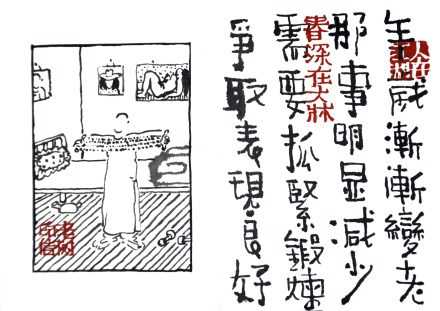 年歲漸漸變老
那事明显減少
需要抓緊鍛煉
爭取表現良好
春深在大牀